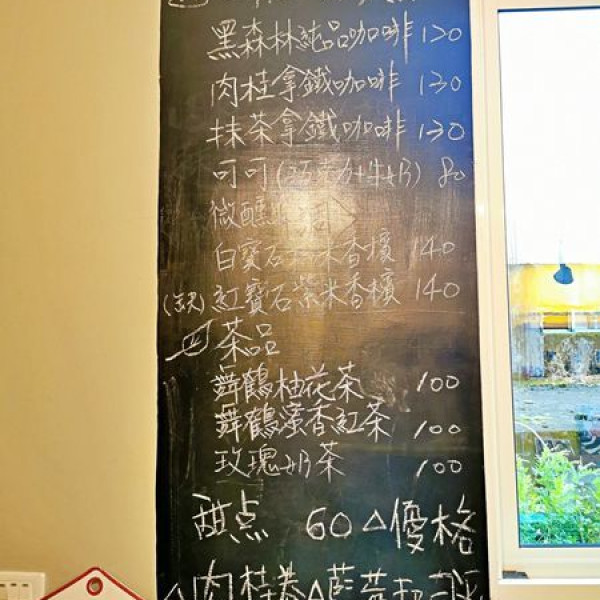 黑森林純品咖啡 120
肉桂拿鐵咖啡 130
抹茶拿鐵咖啡 130
可可(巧克力+牛奶) 80
微醺
白寶石 米香檳 140
(缺) 紅寶石紫米香檳 140
四 茶品
舞鶴柚花茶 100
舞鶴蜜香紅茶 100
玫瑰奶茶 100
甜点 60△優格
△肉桂卷△藍莓